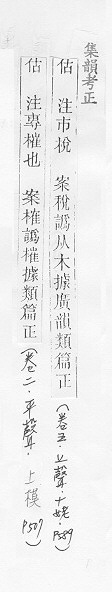 集韻考正
估　注市梲　案稅譌从木據廣韻類篇正（卷五．上聲．十姥．P339）
估　注專榷也　案榷譌㩁據類篇正（卷二．平聲．上模．P507）